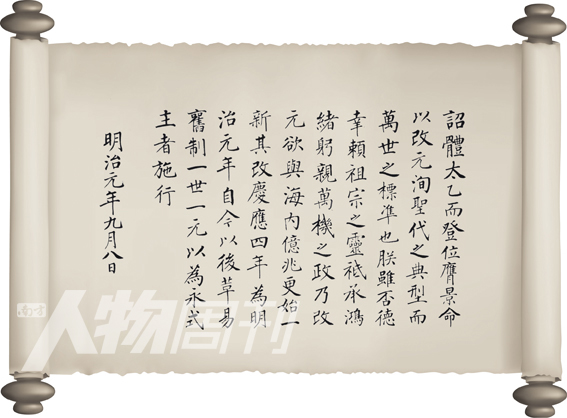 詔體太乙而登位膺景命
以改元洵聖代之典型而
萬世之標準也朕雖否德
幸賴祖宗之靈祗承鴻
緒躬親萬機之政乃改
元欲與海內億兆更始一
新其改慶應四年為明
治元年自今以後草易
舊制一世一元以為永式
主者施行
明治元年九月八日
南方人物周刊